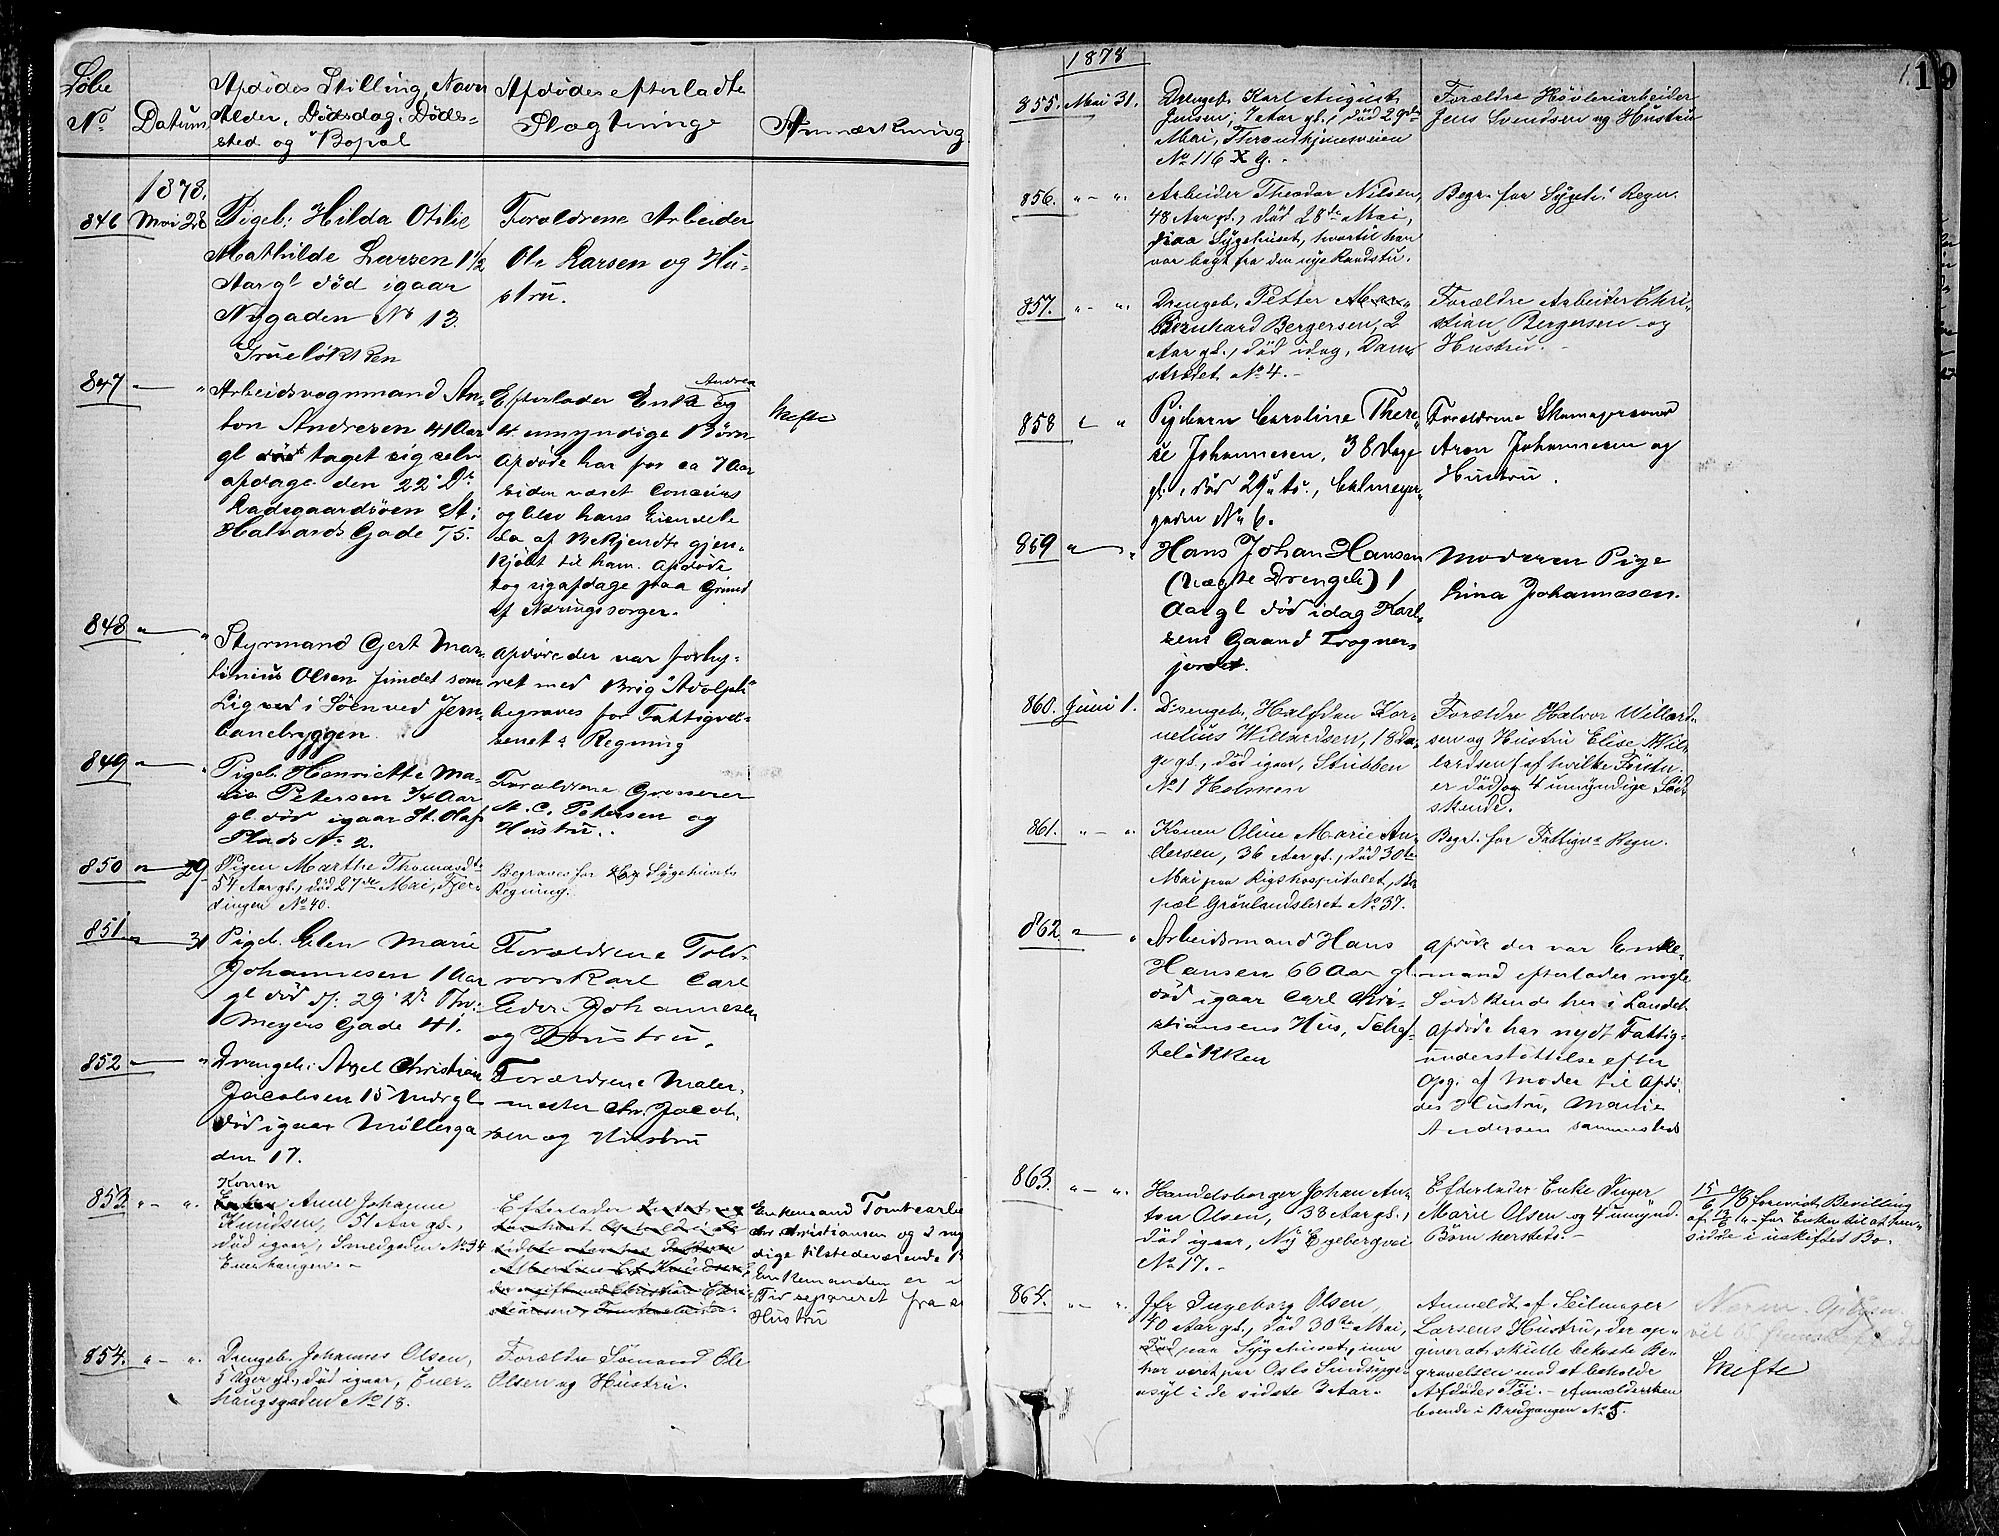 Løbe
No
Datum
Afdødes Stilling, Navn
Alder, Dødsdag, Døds-
sted og Bopæl
Afdødes efterladte
Slægtninge
Anmærkning
1878.
846 Mai 28
Pigeb. Hilda Otilie
Mathilde Larsen 1 1/2
Aar gl død igaar
Nygaden No 13.
Forældrene Arbeider
Ole Larsen og Hu-
stru.
847 — "
Arbeidsvognmand An-
ton Andresen 41 Aar
gl død taget sig selv
afdage den 22 D.
St:
Halvards Gade 75.
Efterlader Enke Andrea og
4 umyndige Børn
Afdøde har for ca 7 Aar
siden været Concurs
og blev hans Eiendele
da af Bekjendte gjen-
kjøbt til ham. Afdøde
tog sig afdage paa Grund
af Næringssorger.
Skifte
848 " — "
Styrmand Gert Mar-
tinius Olsen fundet som
Lig ved i Søen ved Jern-
banebryggen
Afdøde der var forhy-
ret med Brig "Adolph"
begraves for Fattigvæ-
senets Regning
849 " — "
Pigeb. Henriette Ma-
rie Petersen 3/4 Aar
gl død igaar St. Olafs
Plads No 2.
Forældrene Grosserer
M. C. Petersen og
Hustru.
850 " — 29
Pigen Marthe Thomasdtr
54 Aar gl., død 27de Mai, Fjer-
dingen No 40.
Begraves for Sygehusets
Regning.
851 " — 31
Pigeb. Elen Marie
Johannesen 1 Aar
gl død d. 29 ds Thv.
Meyers Gade 41.
Forældrene Told-
rorskarl Carl
Johannesen
og Hustru.
852 " — "
Drengeb: Axel Christian
Jacobsen 15 Uger gl
død igaar Møllerga
den 17.
Forældrene Maler-
mester Chr. Jacob-
sen og Hustru
853. " — "
Konen
Enken Anne Johanne
Knudsen, 51 Aar gl.,
død igaar, Smedgaden No 34
Enerhaugen. -
Efterlader
Enkemand Tomtearbei
Christiansen og 2 my
dige tilstedeværende B
Enkemanden er i
Tid separeret fra
Hustru
854. " — "
Drengeb. Johannes Olsen,
5 Uger gl., død igaar, Ener-
haugsgaden No 18.
Forældre Sømand Ole
Olsen og Hustru.
19
1878
855. Mai 31.
Drengeb. Karl August
Jensen, 7 Aar gl., død 29de
Mai, Throndhjemsveien
No 116 X G. -
Forældre Høvleriarbeider
Jens Svendsen og Hustru
856. " — "
Arbeider Theodor Nilsen,
48 Aar gl., død 28de Mai,
paa Sygehuset, hvortil han
var bragt fra den nye Raadstu.
Begr. for Sygeh.s Regn.
857. " — "
Drengeb. Petter
Bernhard Bergersen, 2
Aar gl., død idag, Dam-
strædet No 4. -
Forældre Arbeider Chri-
stian Bergersen og
Hustru. -
858 " "
Pigebarn Caroline There-
se Johannesen, 38 Dage
gl., død 29 ds.,
gaden No 6.
Forældrene
Aron Johannesen og
Hustru.
859 " — "
Hans Johan Hansen
(uægte Drengeb.) 1
Aar gl død idag Karl-
sens Gaard Frogner-
jordet.
Moderen Pige
Lina Johannesen.
860. Juni 1.
Drengeb. Halfdan Kor-
nelius Willardsen, 18 Da-
ge gl., død igaar, Stubben
No 1 Holmen
Forældre Halvor Willard-
sen og Hustru Elise Wil-
lardsen (af hvilke Første
er død og 4 umyndige Sød-
skende.
861. " — "
Konen Oline Marie An-
dersen, 36 Aar gl., død 30te
Mai paa Rigshospitalet, Bo-
pæl Grønlandsleret No 37.
Begr. for Fattigv.s Regn.
862 " — "
Arbeidsmand Hans
Hansen 66 Aar gl.
død igaar Carl Chri-
stiansens Hus,
teløkken
Afdøde der var Enke-
mand efterlader nogle
Sødskende her i Landet
Afdøde har nydt Fattig-
understøttelse efter
Opg. af Moder til Afdø-
des Hustru, Marie
Andersen sammesteds
863. " — "
Handelsborger Johan An-
ton Olsen, 38 Aar gl.,
død igaar, Ny Egebergvei
No 17. -
Efterlader Enke Inger
Marie Olsen og 4 umynd.
Børn hersteds. -
15/6 78 forevist Bevilling
af 13/6 " for Enken til at hen-
sidde i uskiftet Bo -
864. " — "
Jfr. Ingeborg Olsen,
40 Aar gl., død 30te Mai,
paa Sygehuset, men
har været paa Oslo Sindsyge-
asyl i de sidste 3 Aar -
Anmeldt af Seilmager
Larsens Hustru, der op-
giver at skulle bekoste Be-
gravelsen mod at beholde
Afdødes Tøi. - Anmeldersken
boende i Bredgangen No 5.
Skifte